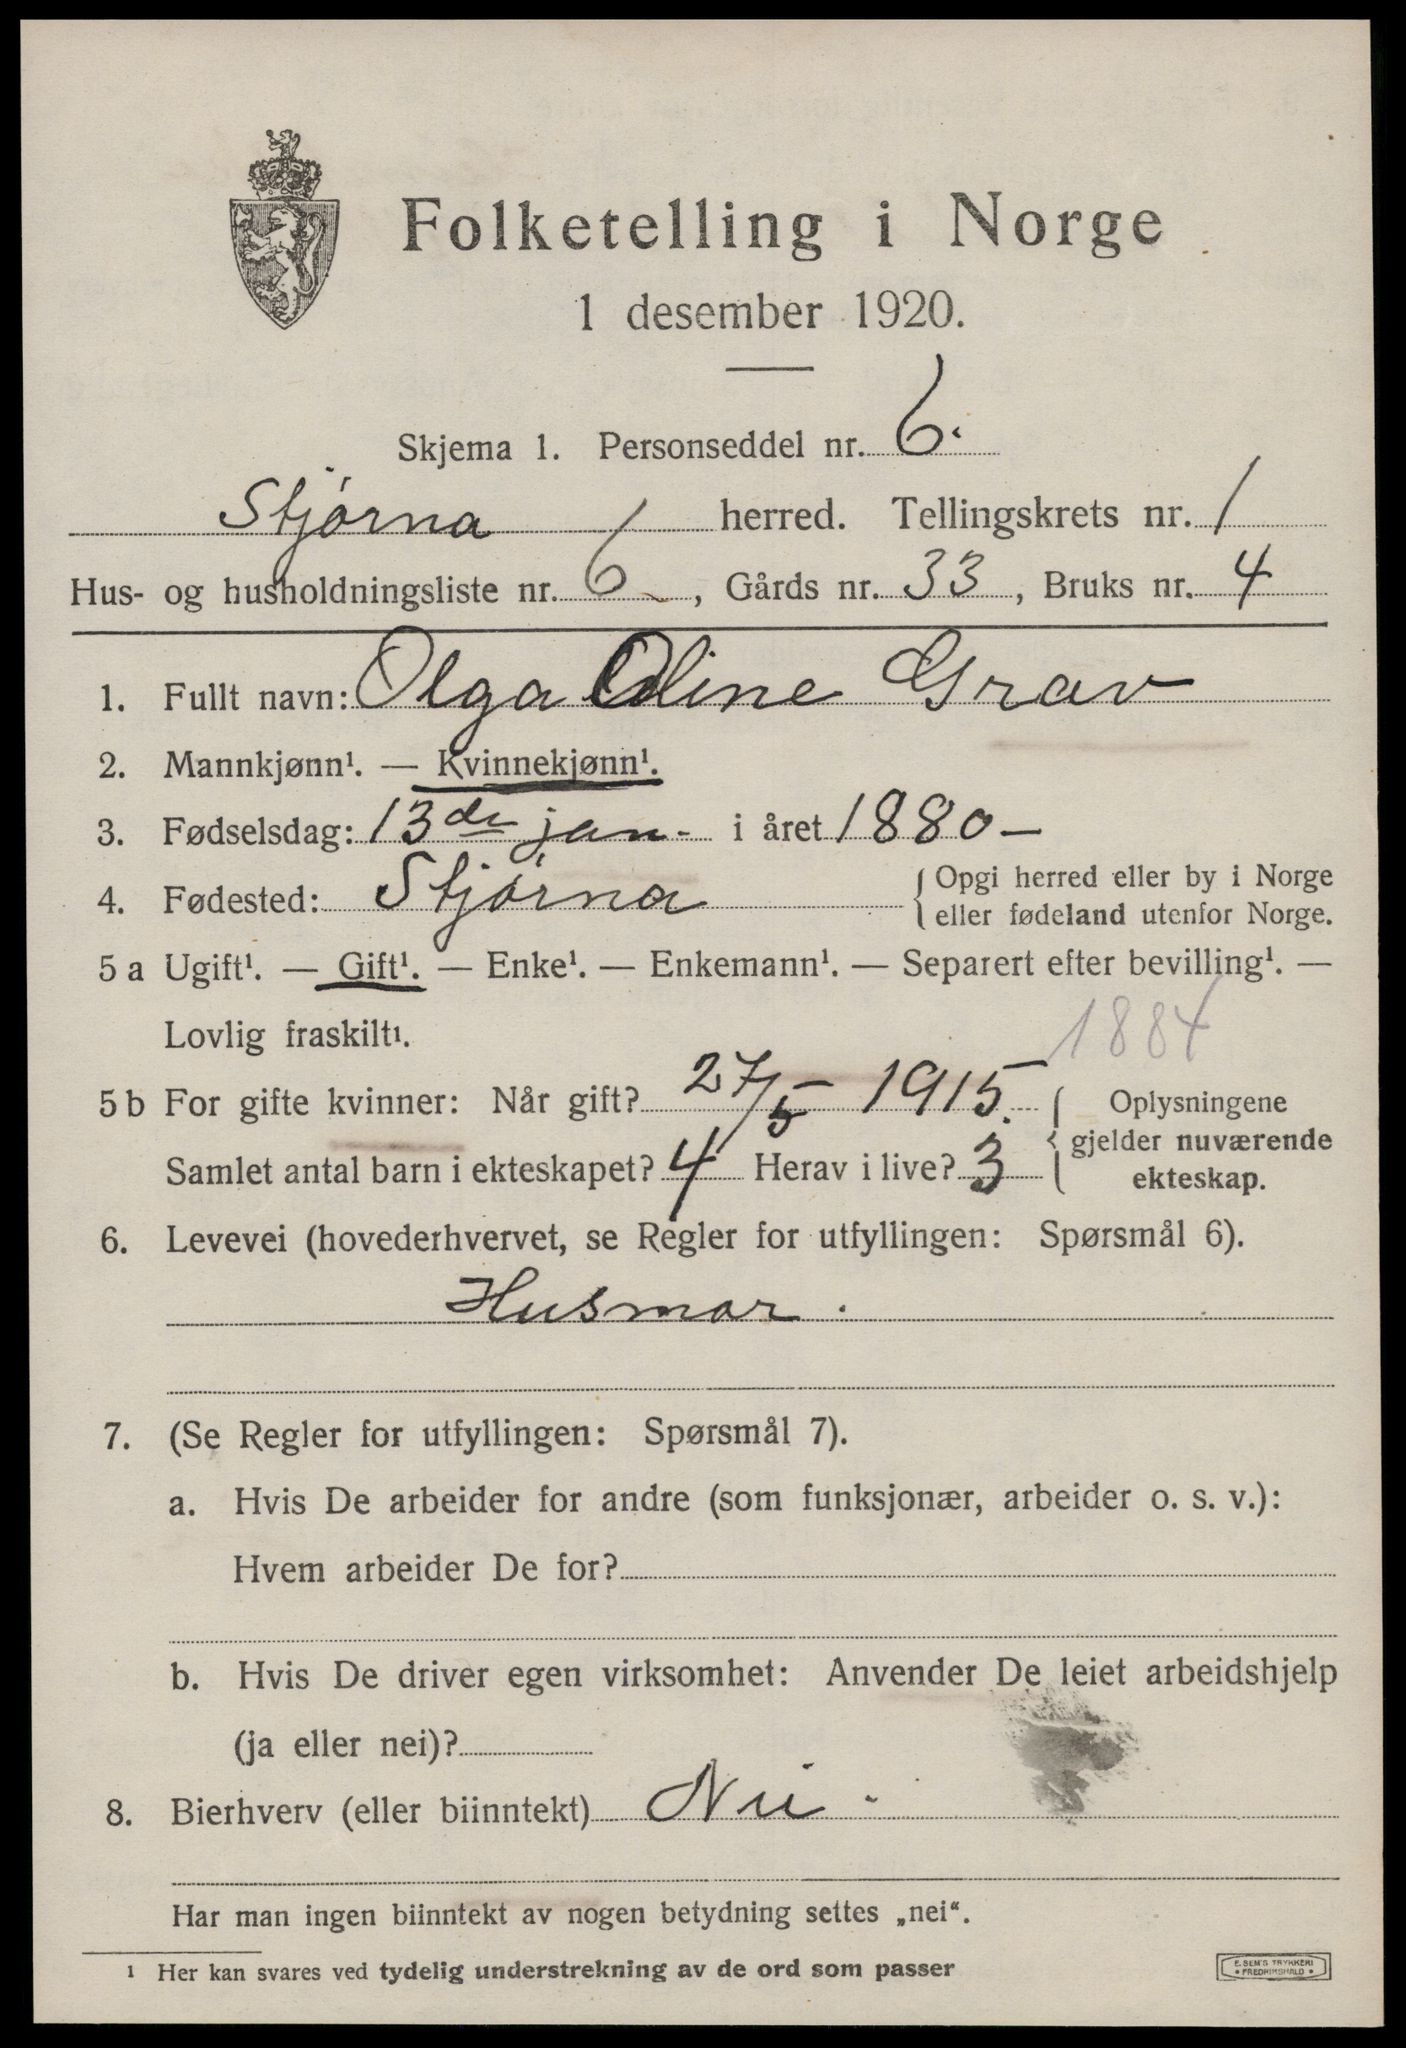 Folketelling i Norge
1 desember 1920.
Skjema 1. Personseddel nr. 6.
Stjørna herred. Tellingskrets nr. 1
Hus- og husholdningsliste nr. 6, Gårds nr. 33, Bruks nr. 4
1. Fullt navn: Olga Oline Grav
2. Mannkjønn¹. — Kvinnekjønn¹.
3. Fødselsdag: 13de jan. i året 1880 —
4. Fødested: Stjørna { Opgi herred eller by i Norge
eller fødeland utenfor Norge.
5 a Ugift¹. — Gift¹. — Enke¹. — Enkemann¹. — Separert efter bevilling¹. —
Lovlig fraskilt¹. 1884
5 b For gifte kvinner: Når gift? 27/5 - 1915. { Oplysningene
gjelder nuværende
Samlet antal barn i ekteskapet? 4 Herav i live? 3 ekteskap.
6. Levevei (hovederhvervet, se Regler for utfyllingen: Spørsmål 6).
Husmor.
7. (Se Regler for utfyllingen: Spørsmål 7).
a. Hvis De arbeider for andre (som funksjonær, arbeider o. s. v.):
Hvem arbeider De for?
b. Hvis De driver egen virksomhet: Anvender De leiet arbeidshjelp
(ja eller nei)?
8. Bierhverv (eller biinntekt) Nei.
Har man ingen biinntekt av nogen betydning settes „nei“.
¹ Her kan svares ved tydelig understrekning av de ord som passer
E. SEM'S TRYKKERI
• FREDRIKSHALD •